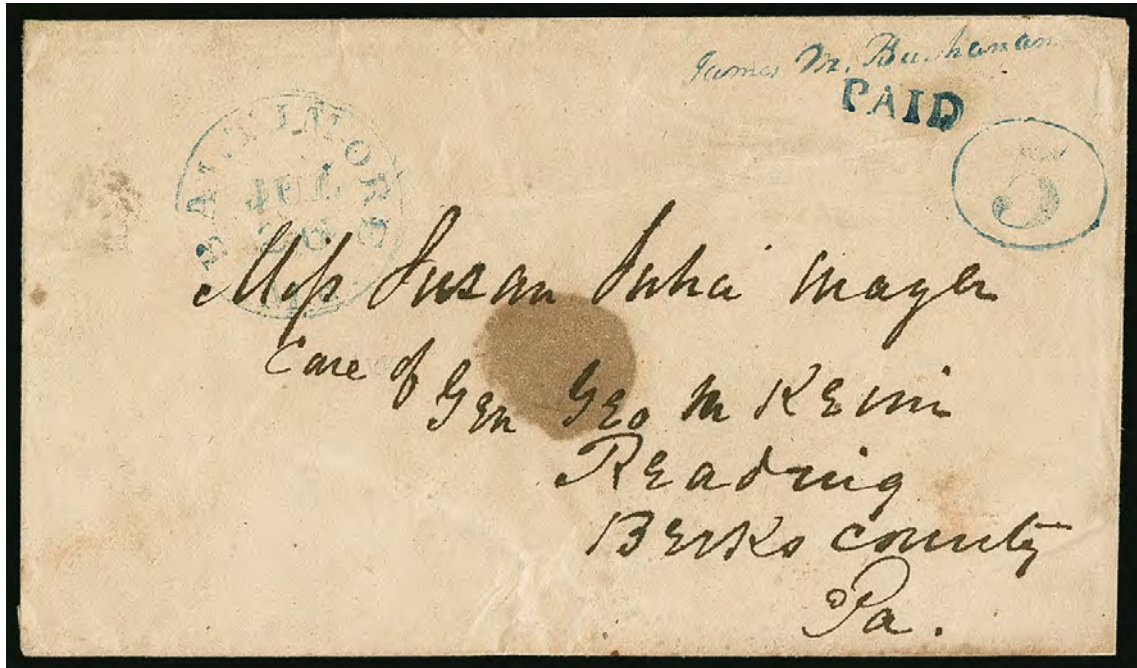 James M. Buchanan
PAID
5
BALTIMORE
JUL
26
Miss Susan Julia Mayer
Care of
Gen Geo M Keim
Reading
Berks County
Pa.